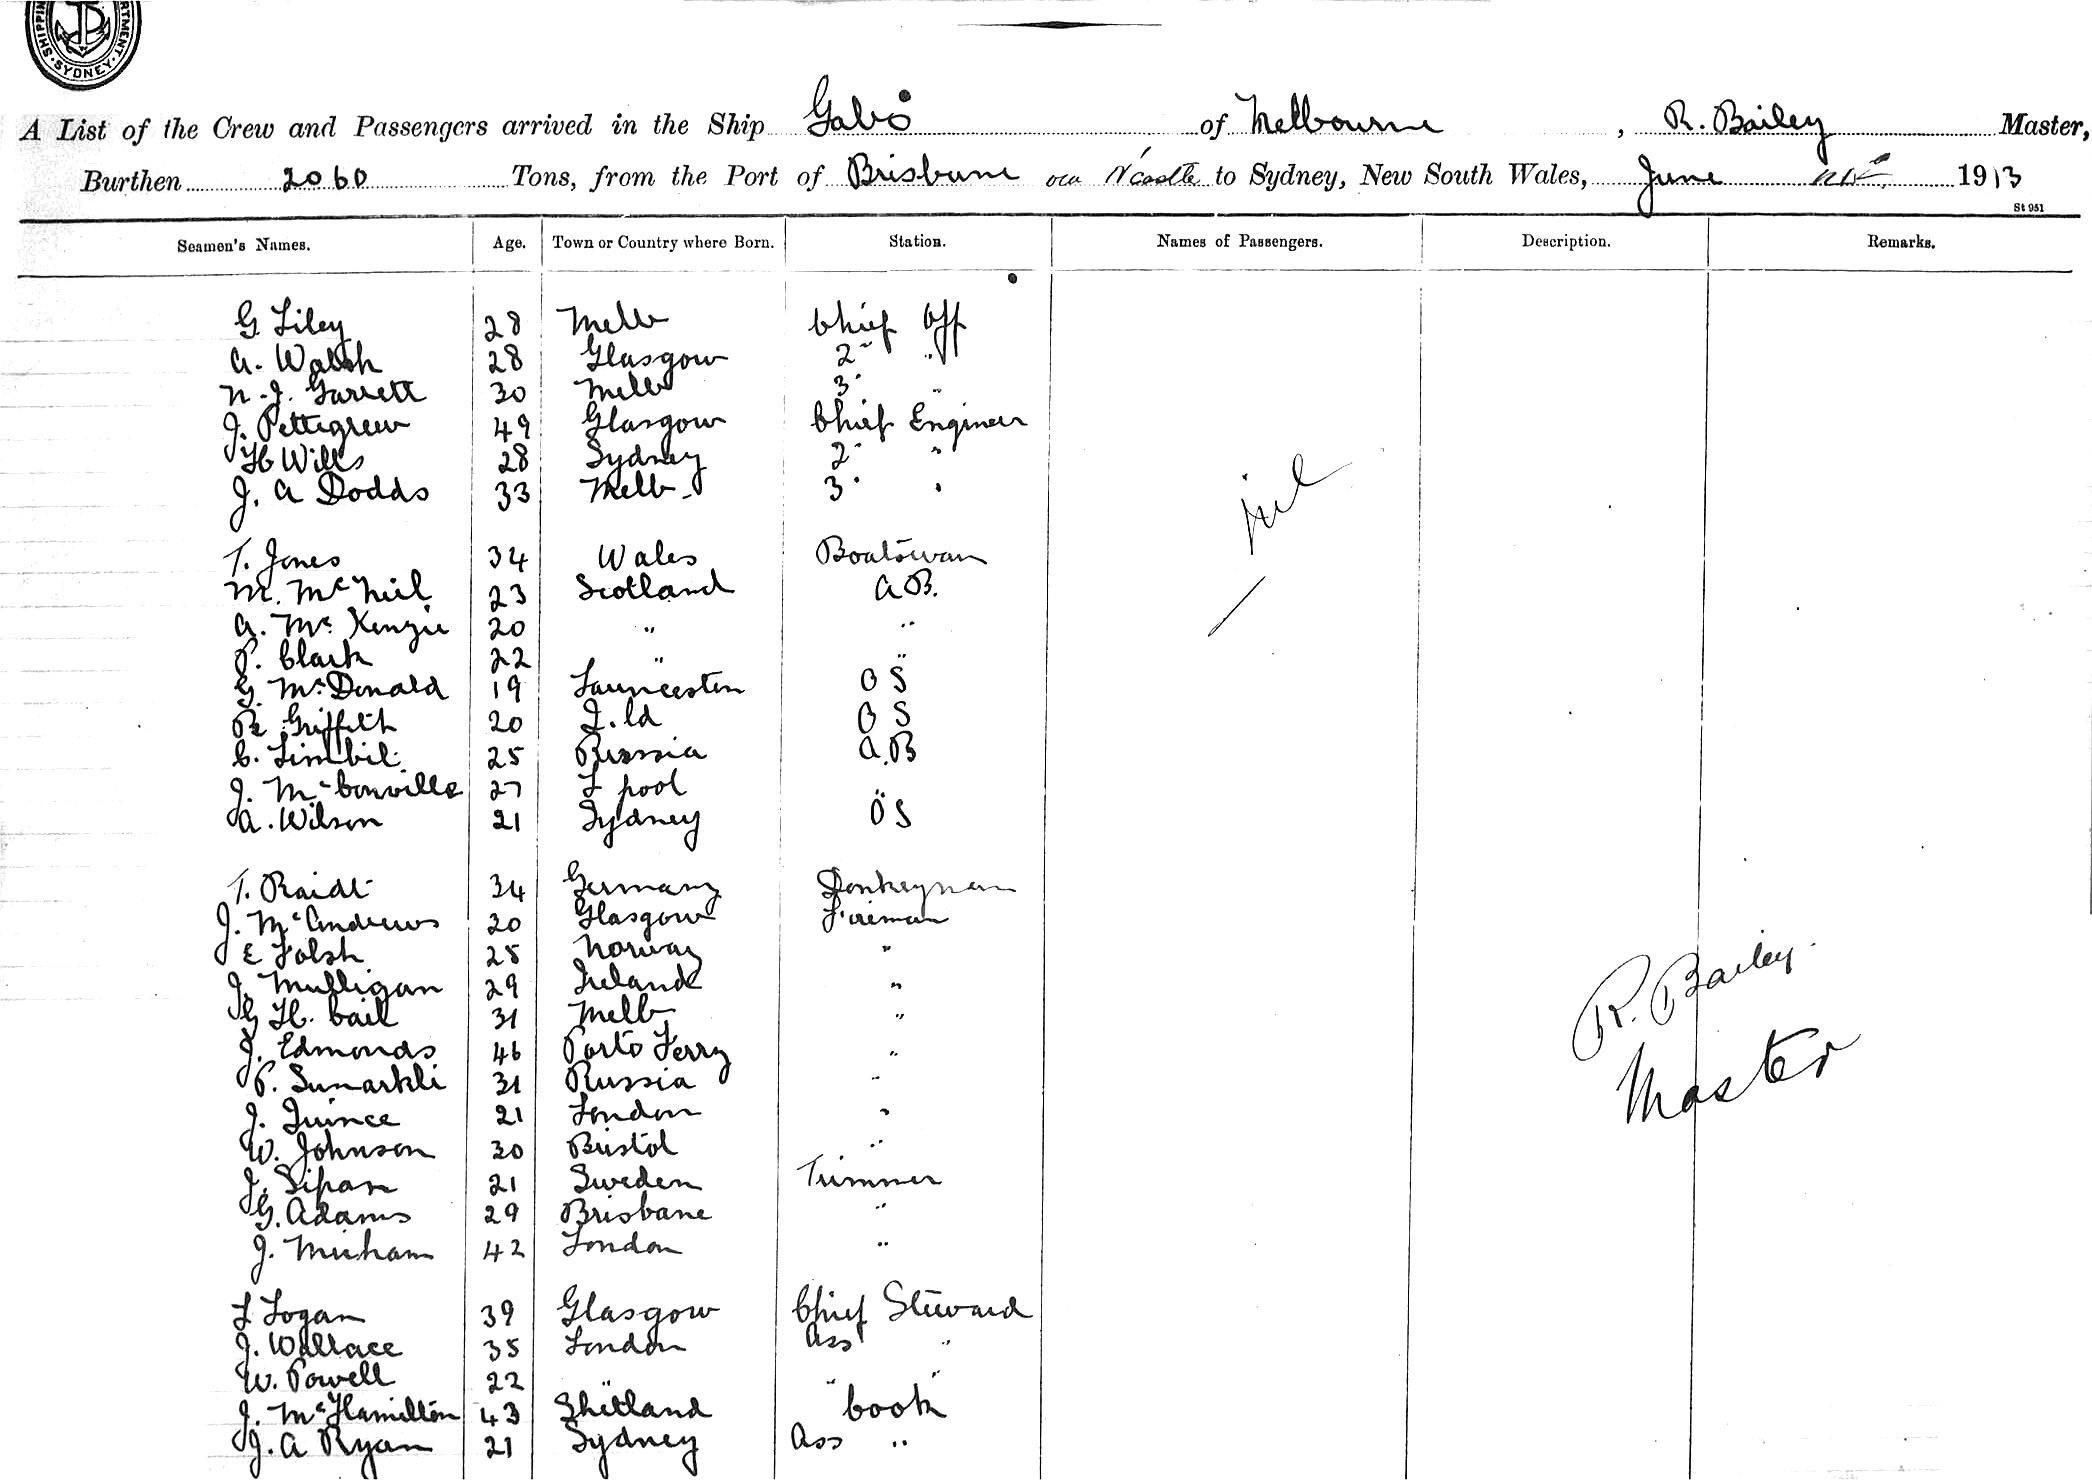 SHIPPIN RTMENT SYDNEY.
A List of the Crew and Passengers arrived in the Ship Gabo of Melbourne, R. Bailey Master,
Burthen 2060 Tons, from the Port of Brisbane via N'castle to Sydney, New South Wales, June 1913
St 951
Seamen's Names. Age. Town or Country where Born. Station. Names of Passengers. Description. Remarks.
G Liley 28 Melb Chief Off
A. Walsh 28 Glasgow 2 "
N. J. Garrett 30 Melb 3 "
J. Pettigrew 49 Glasgow Chief Engineer
H Wills 28 Sydney 2 "
J. A Dodds 33 Melb 3 "
nil
T. Jones 34 Wales Boatswan
M. McNeil 23 Scotland A.B.
A. McKenzie 20 " "
P. Clark 22 " "
G. McDonald 19 Launceston O S
R Griffith 20 Q.ld O S
C. 25 Russia A.B
J. McConville 27 L pool "
A. Wilson 21 Sydney O S
T. Raidt 34 Germany Donkeyman
J. McAndrews 20 Glasgow Fireman
E Folsh 25 Norway "
J. Mulligan 29 Ireland "
G H. Cail 31 Melb "
J. Edmonds 46 Porto Ferry "
P. 31 Russia "
J. Quince 21 London "
W. Johnson 30 Bristol "
J. 21 Sweden Trimmer
G. Adams 29 Brisbane "
J. 42 London "
R. Bailey
Master
L Logan 39 Glasgow Chief Steward
J. Wallace 35 London Ass "
W. Powell 22 " " "
J. McHamilton 43 Shetland Cook
J. A Ryan 21 Sydney Ass "